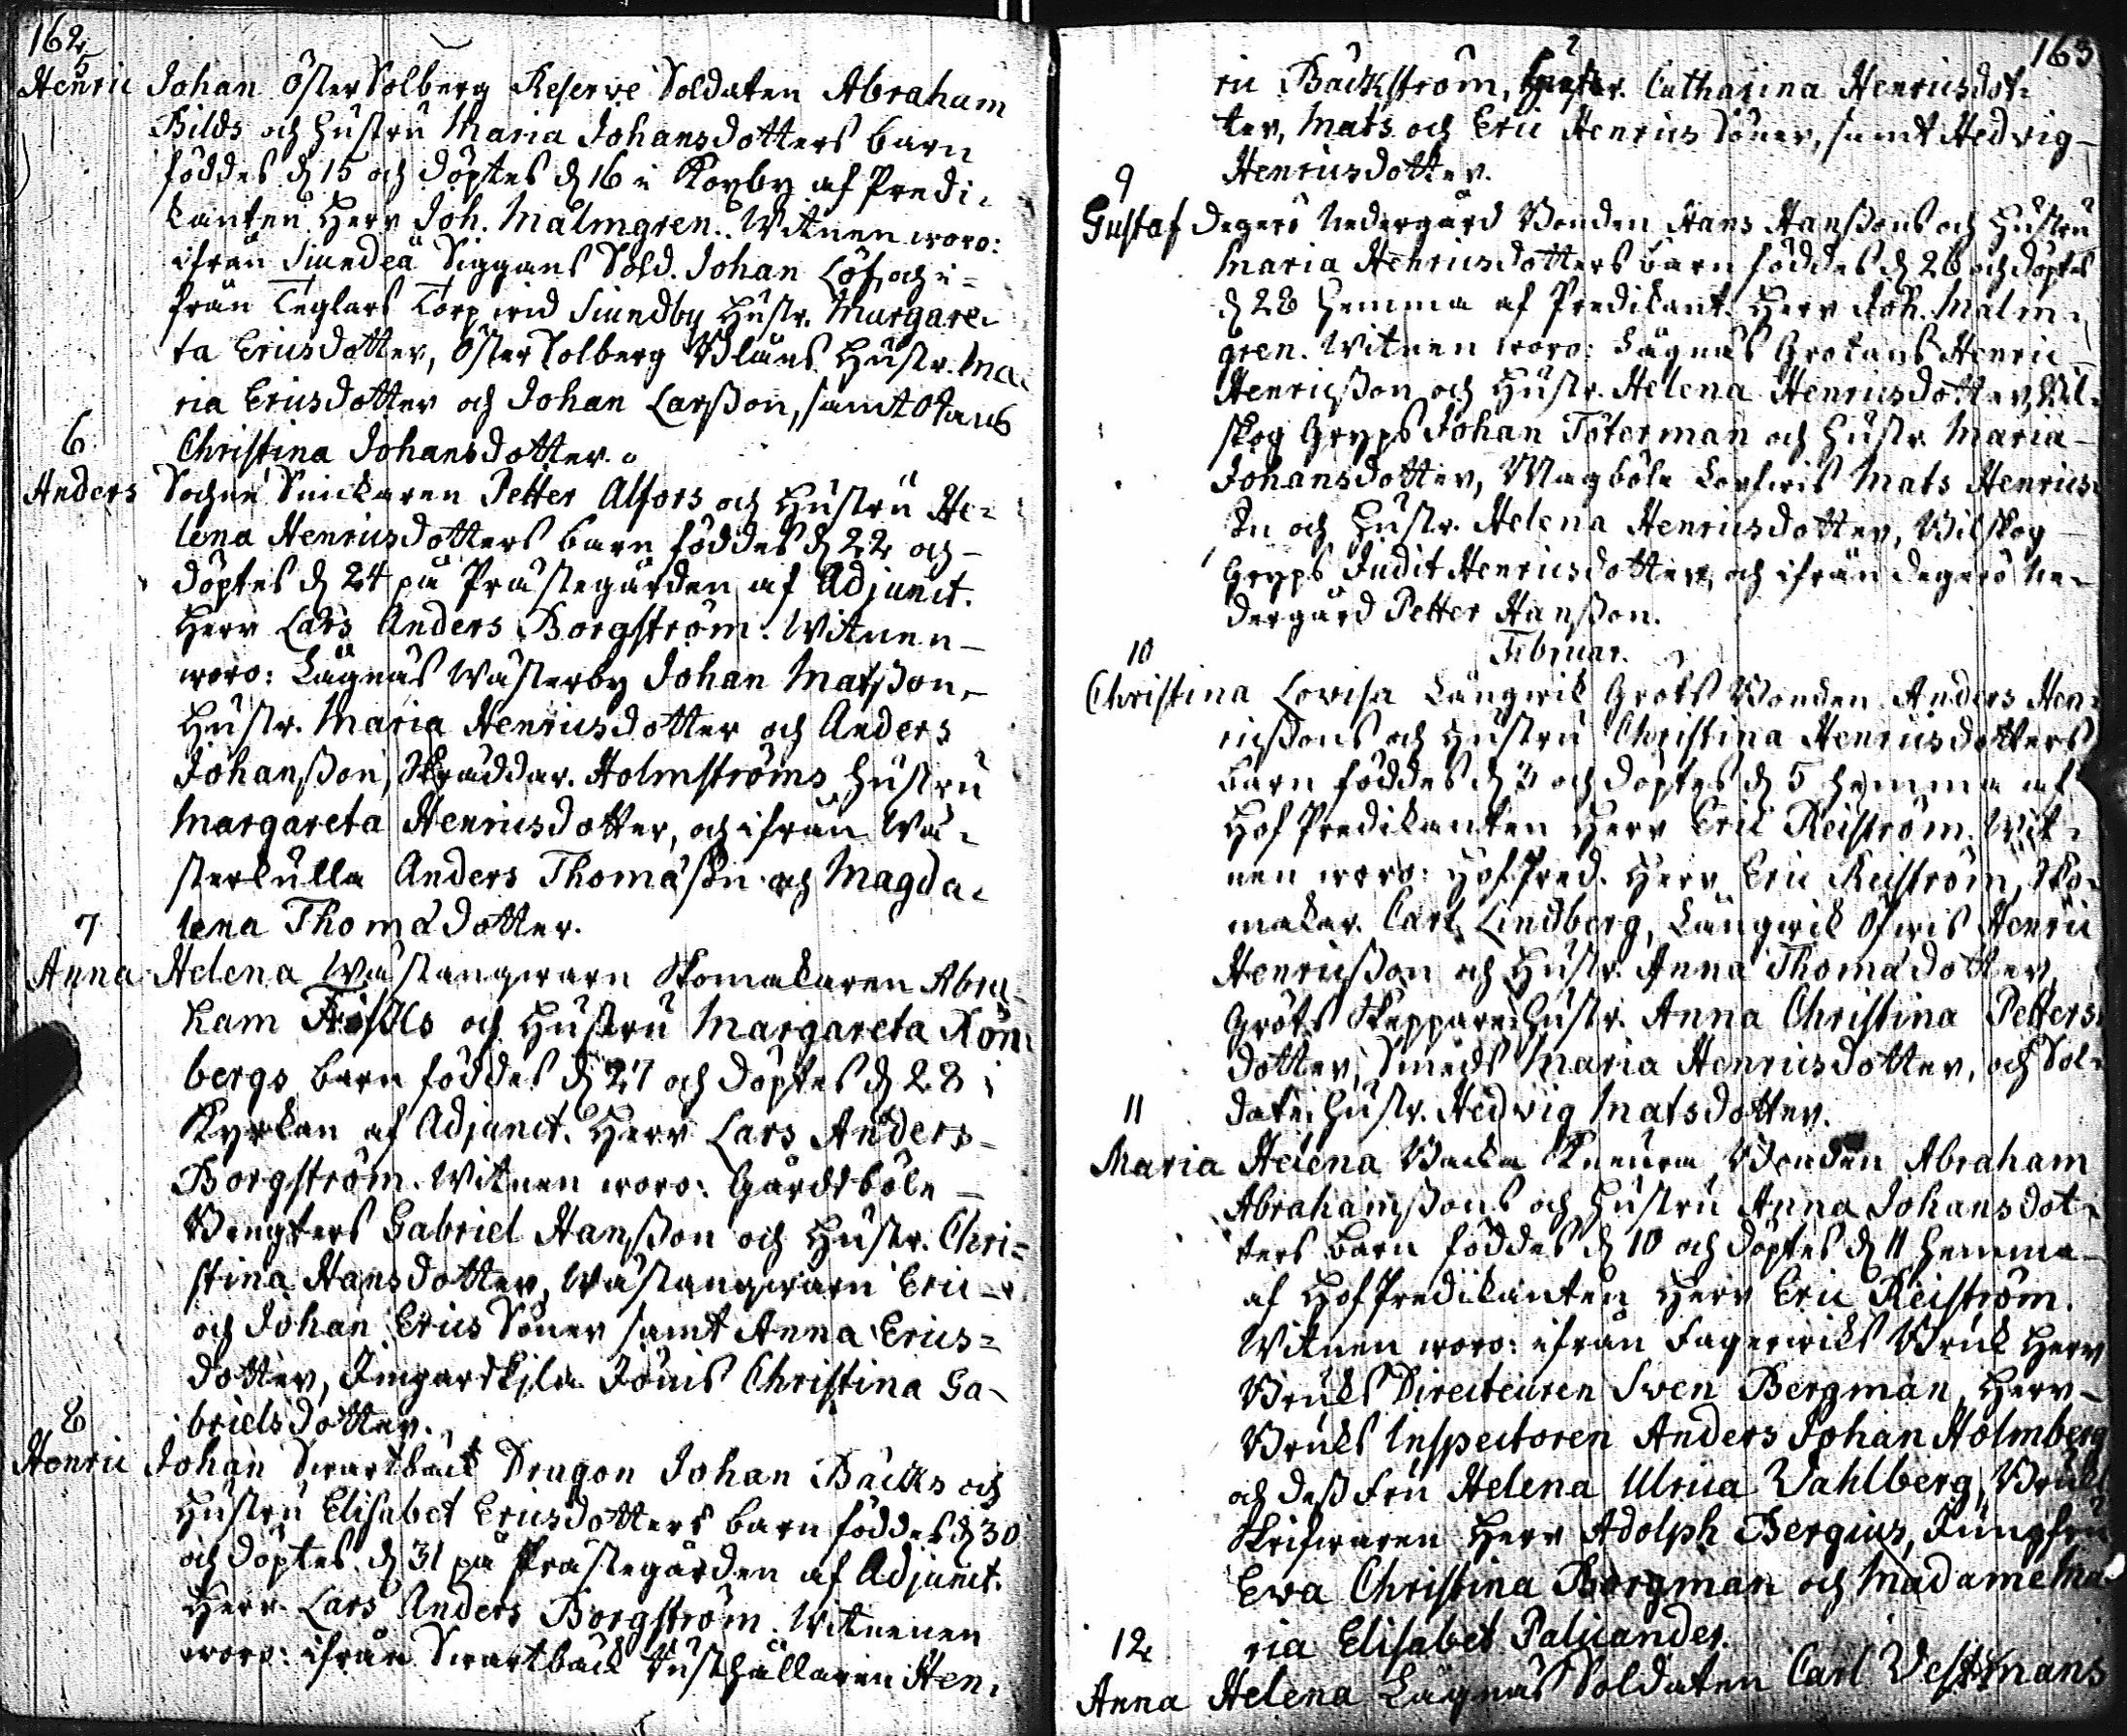 162
5
Henric Johan Östersolberg Reserve Soldaten Abraham
Bilds och Hustru Maria Johansdotters barn
föddes d 15 och döptes d 16 i Korby af Predi-
kanten Herr Joh. Malmgren. Witnen woro:
ifrån Siundeå Siggans Sold. Johan Löf och i-
från Teglars Torp wid Siundby Hustr. Margare-
ta Ericsdotter, Östersolberg Hustr. Ma-
ria Ericsdotter och Johan Larsson, samt
Christina Johansdotter.
6
Anders Sockne Snickaren Petter Alfors och Hustru He-
lena Henricsdotters barn föddes d 22 och
döptes d 24 på Prästegården af Adjunct.
Herr Lars Anders Borgström. Witnen
woro: Lågnäs Wästerby Johan Matsson,
Hustr. Maria Henricsdotter och Anders
Johansson, Skräddar. Holmströms Hustru
Margareta Henricsdotter, och ifrån Wä-
sterkulla Anders Thomasson och Magda-
lena Thomædotter.
7
Anna Helena Wästangwarn Skomakaren Abra-
ham Frisks och Hustru Margareta Rön-
bergs barn föddes d 27 och döptes d 28 i
Kyrkan af Adjunct. Herr Lars Anders
Borgström. Witnen woro: Gårdsböle
Bengters Gabriel Hansson och Hustr. Chri-
stina Hansdotter, Wästangwarn Eric
och Johan Erics Söner samt Anna Erics-
dotter, Ingarskila Jönis Christina Ga-
brielsdotter.
8
Henric Johan Swartback Dragon Johan Bäcks och
Hustru Elisabet Ericsdotters barn föddes d 30
och döptes d 31 på Prästegården af Adjunct.
Herr Lars Anders Borgström. Witnenen
woro: ifrån Swartback Rusthållaren Hen-
163
ric Backström, Hustr. Catharina Henricsdot-
ter, Mats och Eric Henrics Söner, samt Hedvig
Henricsdotter.
9
Gustaf Degerö Nedergård Bonden Hans Hanssons och Hustru
Maria Henricsdotters barn föddes d 26 och döptes
d 28 hemma af Predikant. Herr Joh. Malm-
gren. Witnen woro: Lågnäs Grokans Henric
Henricsson och Hustr. Helena Henricsdotter, Wil-
skog Gryps Johan Töterman och Hustr. Maria
Johansdotter, Magböle Mats Henrics-
son och Hustr. Helena Henricsdotter, Wilskog
Gryps Judit Henricsdotter, och ifrån Degerö Ne-
dergård Petter Hansson.
Februar.
10
Christina Lovisa Långwik Gröts Bonden Anders Hen-
ricssons och Hustru Christina Henricsdotters
barn föddes d 3 och döptes d 5 hemma af
Hof Predikanten Herr Eric Reiström. Wit-
nen woro: Hof Pred. Herr Eric Reiström, Sko-
makar. Carl Lindberg, Långwik Öfwis Henric
Henricsson och Hustr. Anna Thomædotter,
Gröts Skeppare Hustr. Anna Christina Petters-
dotter, Smeds Maria Henricsdotter, och Sol-
date Hustr. Hedvig Matsdotter.
11
Maria Helena Backa Bonden Abraham
Abrahamssons och Hustru Anna Johansdot-
ters barn föddes d 10 och döptes d 11 hemma
af Hof Predikanten Herr Eric Reiström.
Witnen woro: ifrån Fagerwiks Bruk Herr
Bruks Directeuren Swen Bergman, Herr
Bruks Inspectoren Anders Johan Holmberg
och dess Fru Helena Ulrica Wahlberg, Bruks
Skrifwaren Herr Adolph Bergius, Jungfru
Ewa Christina Bergman och Madame Ma-
ria Elisabet Paliander.
12
Anna Helena Lågnäs Soldaten Carl Vestmans